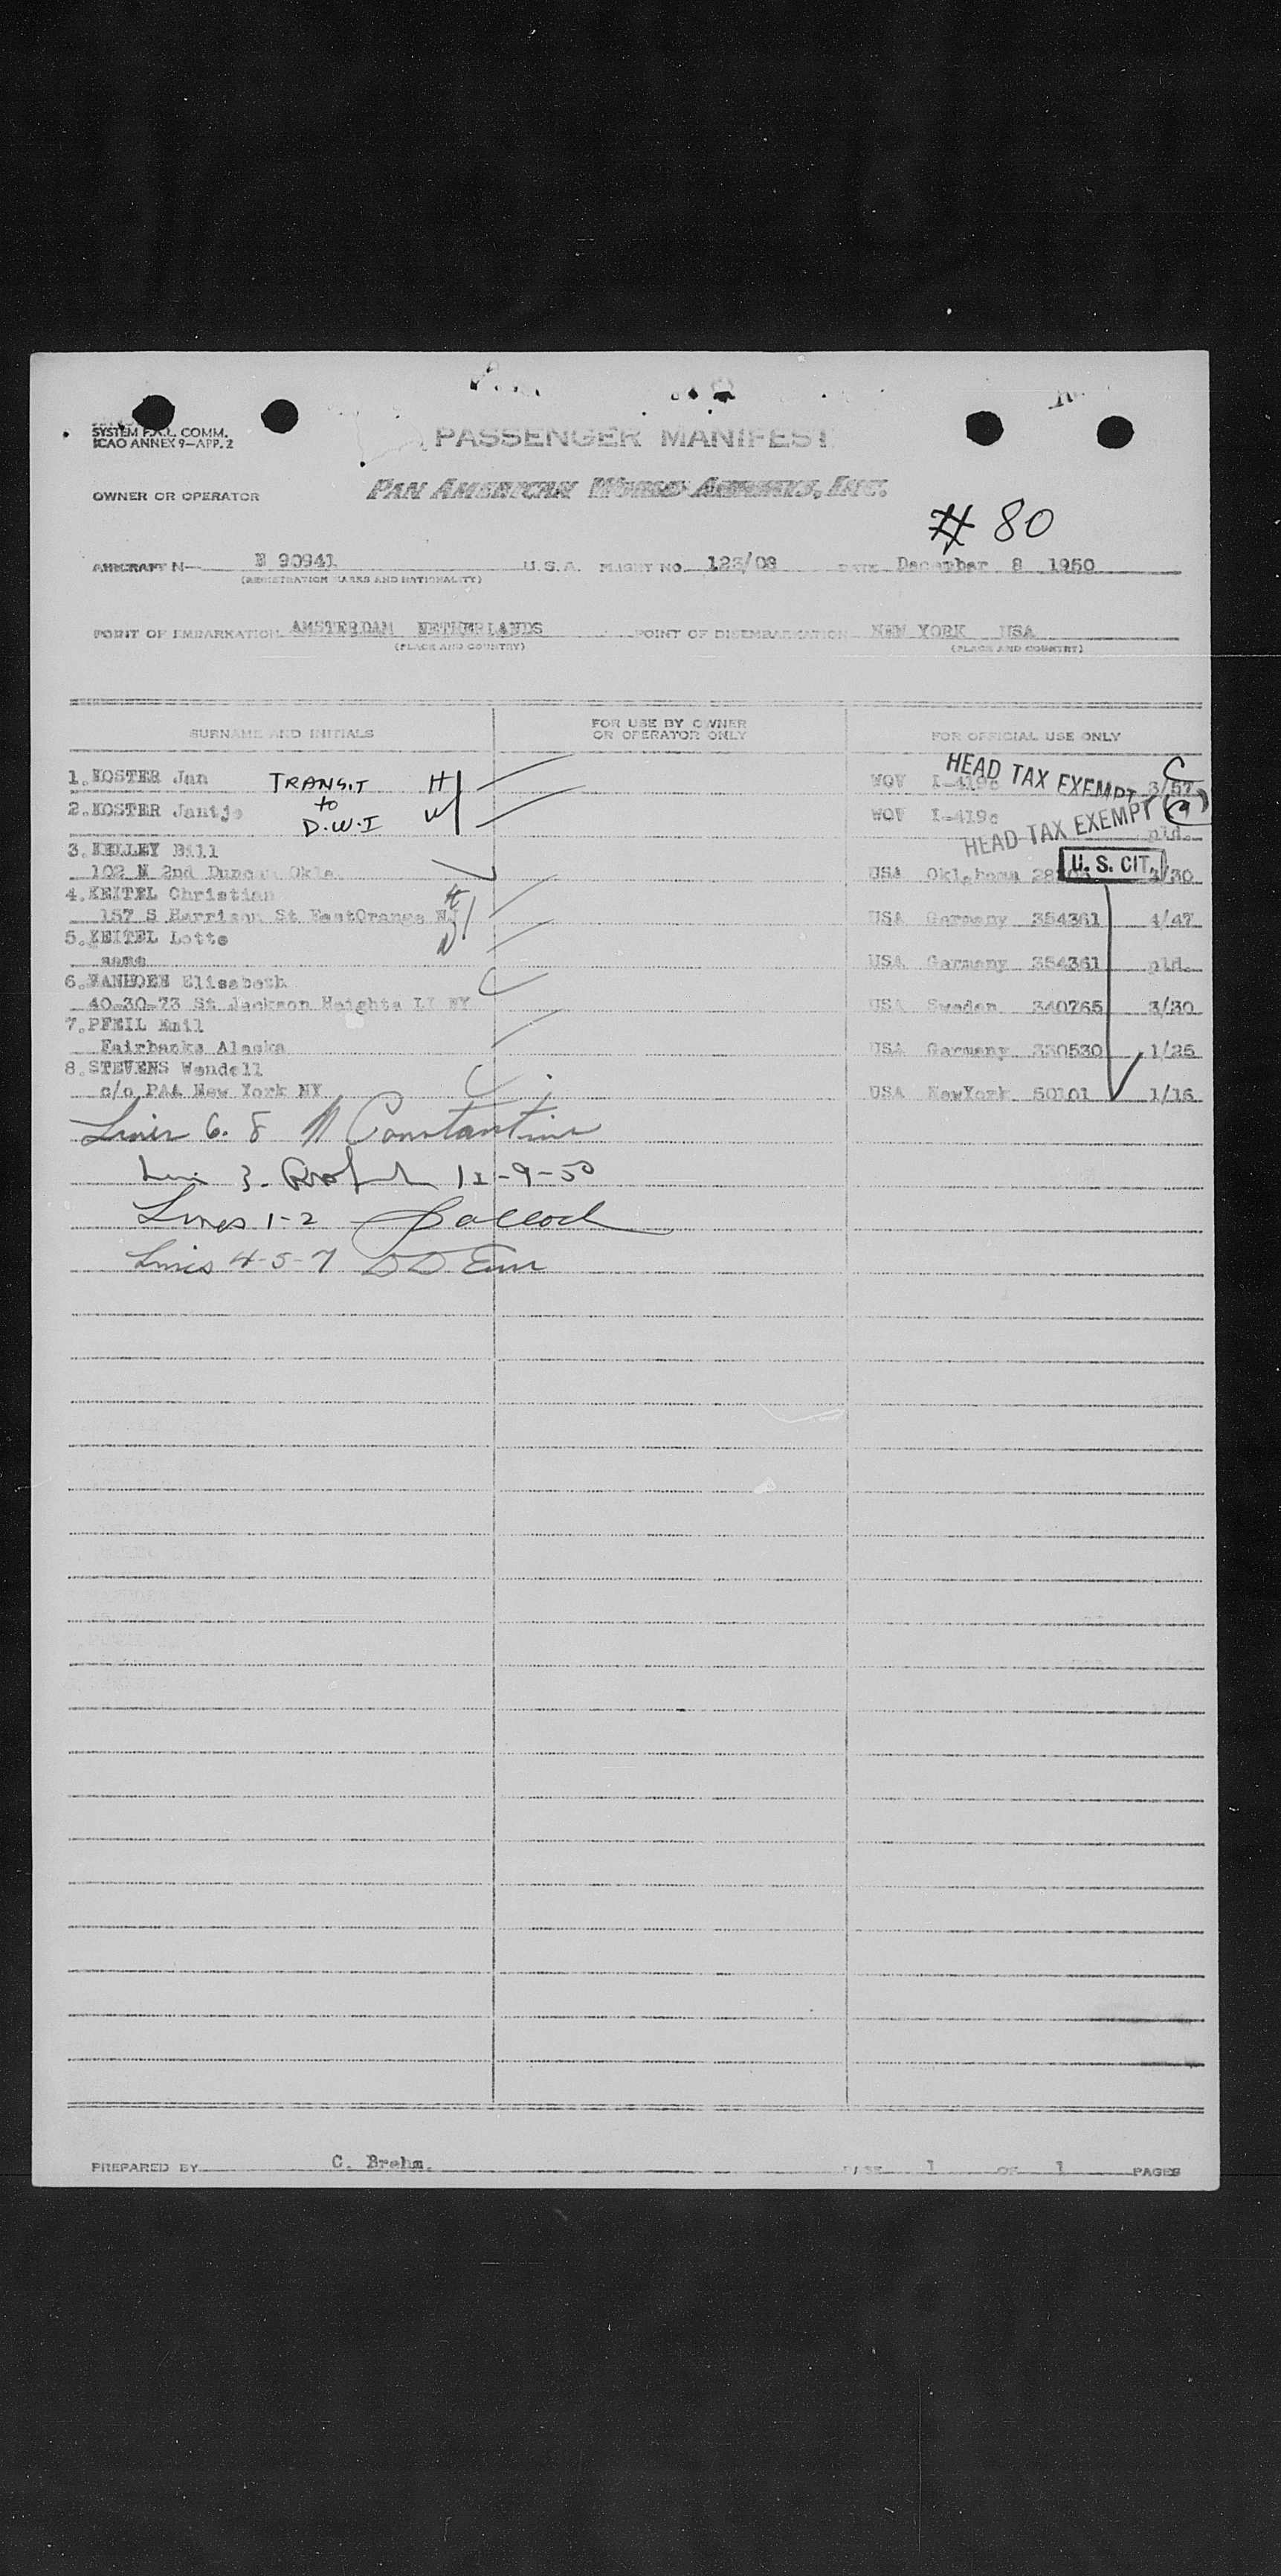 SYSTEM F.A.L. COMM.
ICAO ANNEX 9—APP. 2
PASSENGER MANIFEST
OWNER OR OPERATOR PAN AMERICAN WORLD AIRWAYS, INC.
# 80
AIRCRAFT N— N 90941 U.S.A. FLIGHT NO. 123/08 DATE December 8 1950
(REGISTRATION MARKS AND NATIONALITY)
POINT OF EMBARKATION AMSTERDAM NETHERLANDS POINT OF DISEMBARKATION NEW YORK USA
(PLACE AND COUNTRY) (PLACE AND COUNTRY)
SURNAME AND INITIALS FOR USE BY OWNER OR OPERATOR ONLY FOR OFFICIAL USE ONLY
1. KOSTER Jan TRANSIT H WOV I-419c HEAD TAX EXEMPT C 3/57
to
2. KOSTER Jantje D.W.I W WOV I-419c HEAD TAX EXEMPT pld.
3. KELLEY Bill
102 N 2nd Duncan Okla. USA Oklahoma U. S. CIT. 3/30
4. KEITEL Christian H
157 S Harrison St EastOrange NJ USA Germany 354361 4/47
5. KEITEL Lotte W
same USA Germany 354361 pld.
6. Elisabeth
40-30-73 St Jackson Heights LI NY USA Sweden 340765 3/30
7. PFEIL Emil
Fairbanks Alaska USA Germany 330530 1/25
8. STEVENS Wendell
c/o PAA New York NY USA NewYork 50101 1/16
Lines 6. 8 N Constantine
Line 3. 12-9-50
Lines 1-2
Lines 4-5-7 DD
PREPARED BY C. Brehm. PAGE 1 OF 1 PAGES